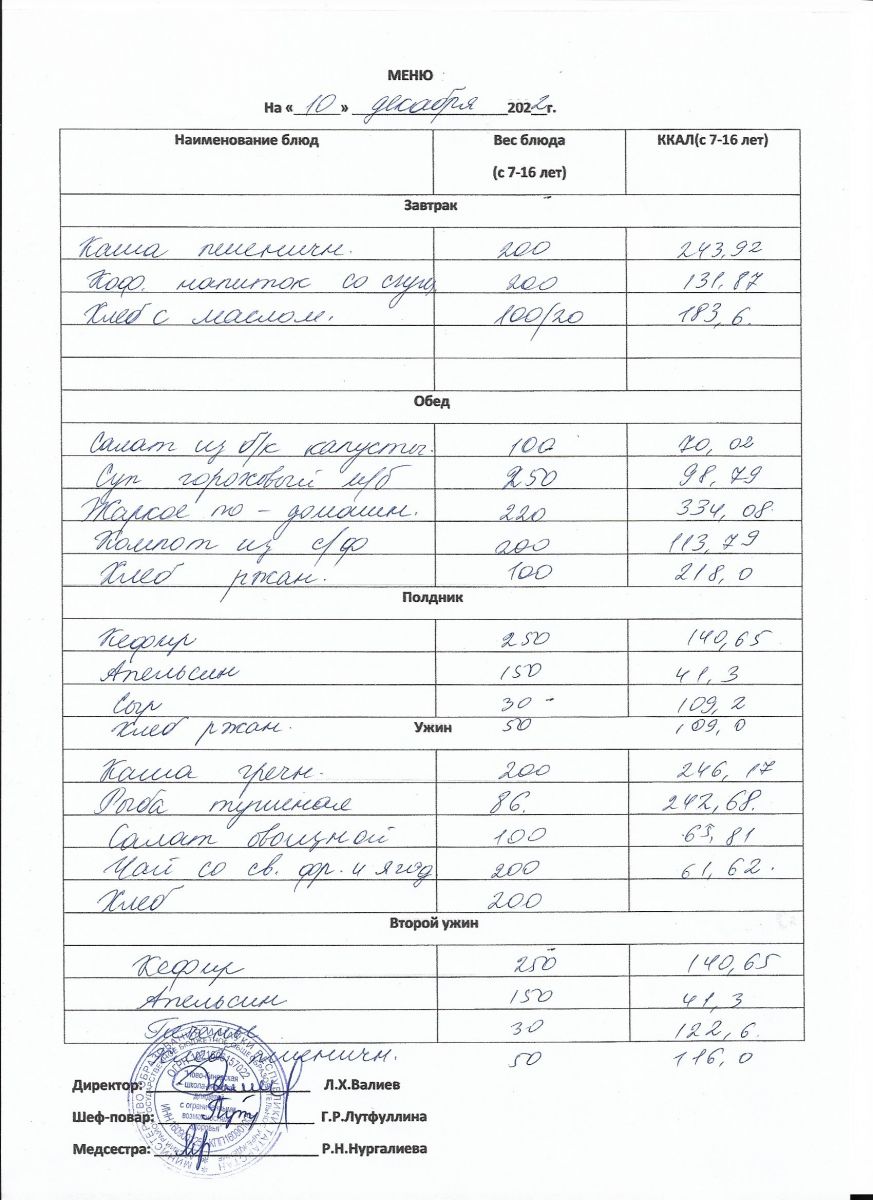 МЕНЮ
На « 10 » декабря 2022 г.
Наименование блюд Вес блюда (с 7-16 лет) ККАЛ(с 7-16 лет)
Завтрак
Каша пшеничн. 200 243,92
Коф. напиток со сгущ. 200 131,87
Хлеб с маслом. 100/20 183,6.
Обед
Салат из б/к капусты. 100 70,02
Суп гороховый м/б 250 98,79
Жаркое по - домашн. 220 334,08.
Компот из с/ф 200 113,79
Хлеб ржан. 100 218,0
Полдник
Кефир 250 140,65
Апельсин 150 41,3
Сыр 30 109,2
Хлеб ржан. 50 109,0
Ужин
Каша гречн. 200 246,17
Рыба тушеная 86. 242,68.
Салат овощной 100 65,81
Чай со св. фр. и ягод 200 61,62.
Хлеб 200
Второй ужин
Кефир 250 140,65
Апельсин 150 41,3
30 122,6.
пшеничн. 50 116,0
Директор: Л.Х.Валиев
Шеф-повар: Г.Р.Лутфуллина
Медсестра: Р.Н.Нургалиева